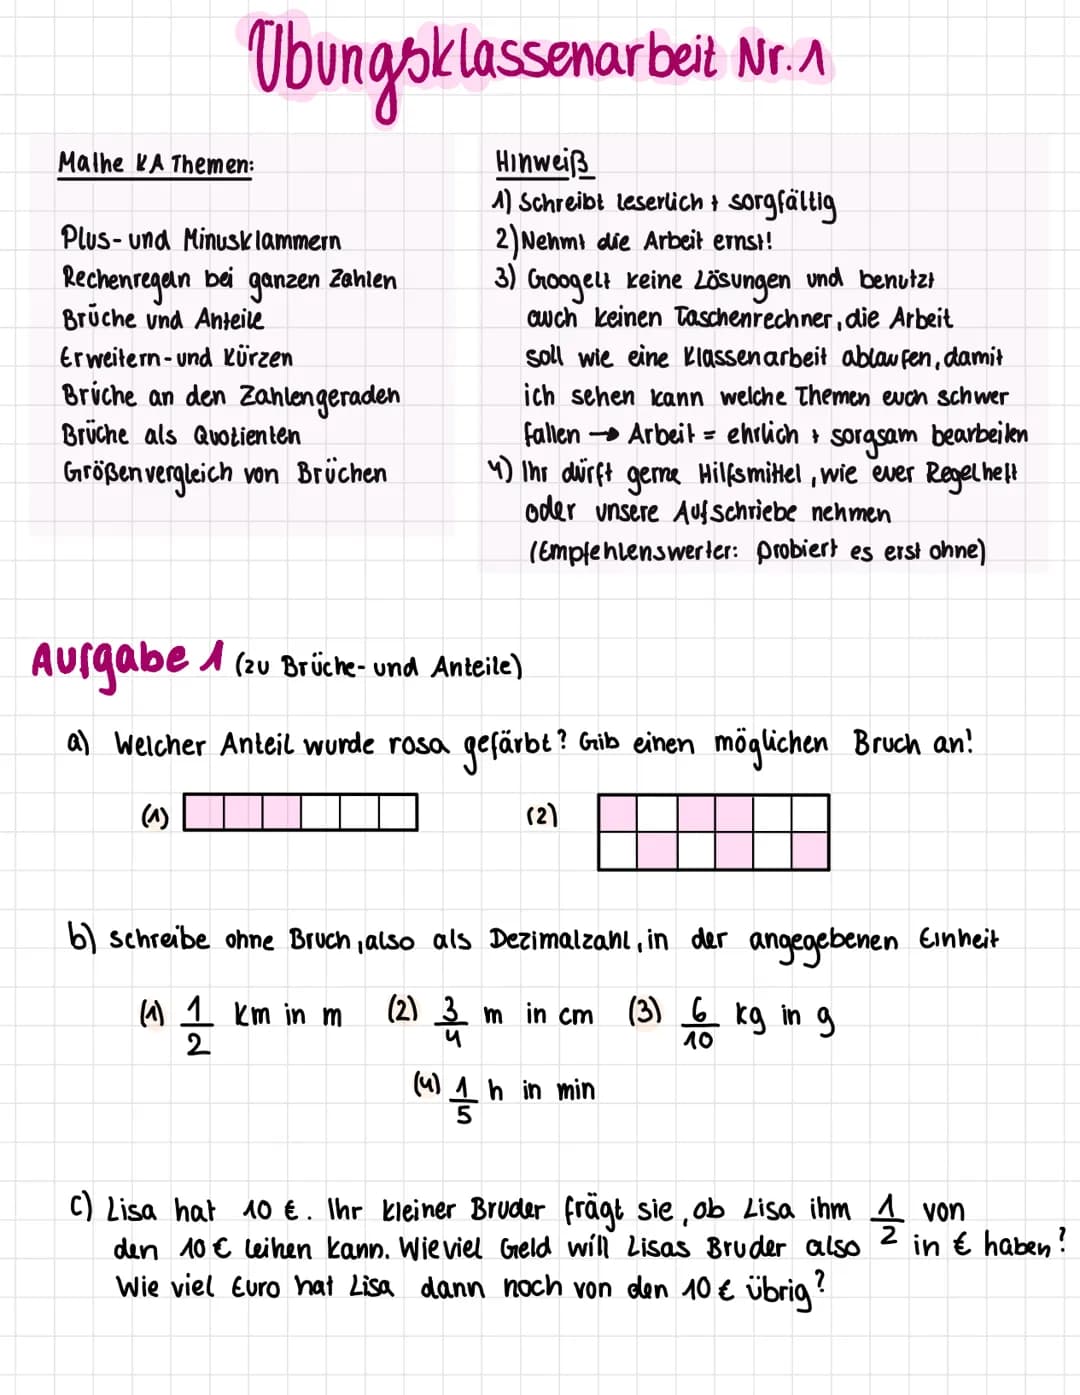 Übungsklassenarbeit Nr. 1
Mathe KA Themen:
Plus- und Minusklammern
Rechenregeln bei ganzen Zahlen
Brüche und Anteile
Erweitern- und Kürzen
Brüche an den Zahlengeraden
Brüche als Quotienten
Größenvergleich von Brüchen
Hinweiß
1) Schreibt leserlich + sorgfältig
2) Nehmt die Arbeit ernst!
3) Googelt keine Lösungen und benutzt
auch keinen Taschenrechner, die Arbeit
soll wie eine Klassenarbeit ablaufen, damit
ich sehen kann welche Themen euch schwer
fallen → Arbeit = ehrlich + sorgsam bearbeiten
4) Ihr dürft gerne Hilfsmittel, wie euer Regelheft
oder unsere Aufschriebe nehmen
(Empfehlenswerter: probiert es erst ohne)
Aufgabe 1 (zu Brüche- und Anteile)
a) Welcher Anteil wurde rosa gefärbt? Gib einen möglichen Bruch an!
(1) (2)
b) schreibe ohne Bruch, also als Dezimalzahl, in der angegebenen Einheit
(1) 1/2 km in m (2) 3/4 m in cm (3) 6/10 kg in g
(4) 1/5 h in min
c) Lisa hat 10 €. Ihr kleiner Bruder frägt sie, ob Lisa ihm 1/2 von
den 10 € leihen kann. Wieviel Geld will Lisas Bruder also in € haben?
Wie viel Euro hat Lisa dann noch von den 10 € übrig?